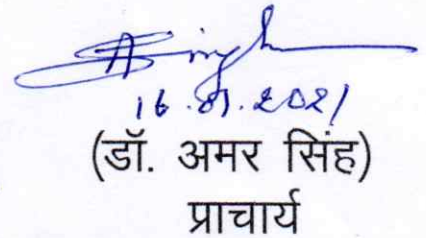 Asingh
16.01.2021
(डॉ. अमर सिंह)
प्राचार्य